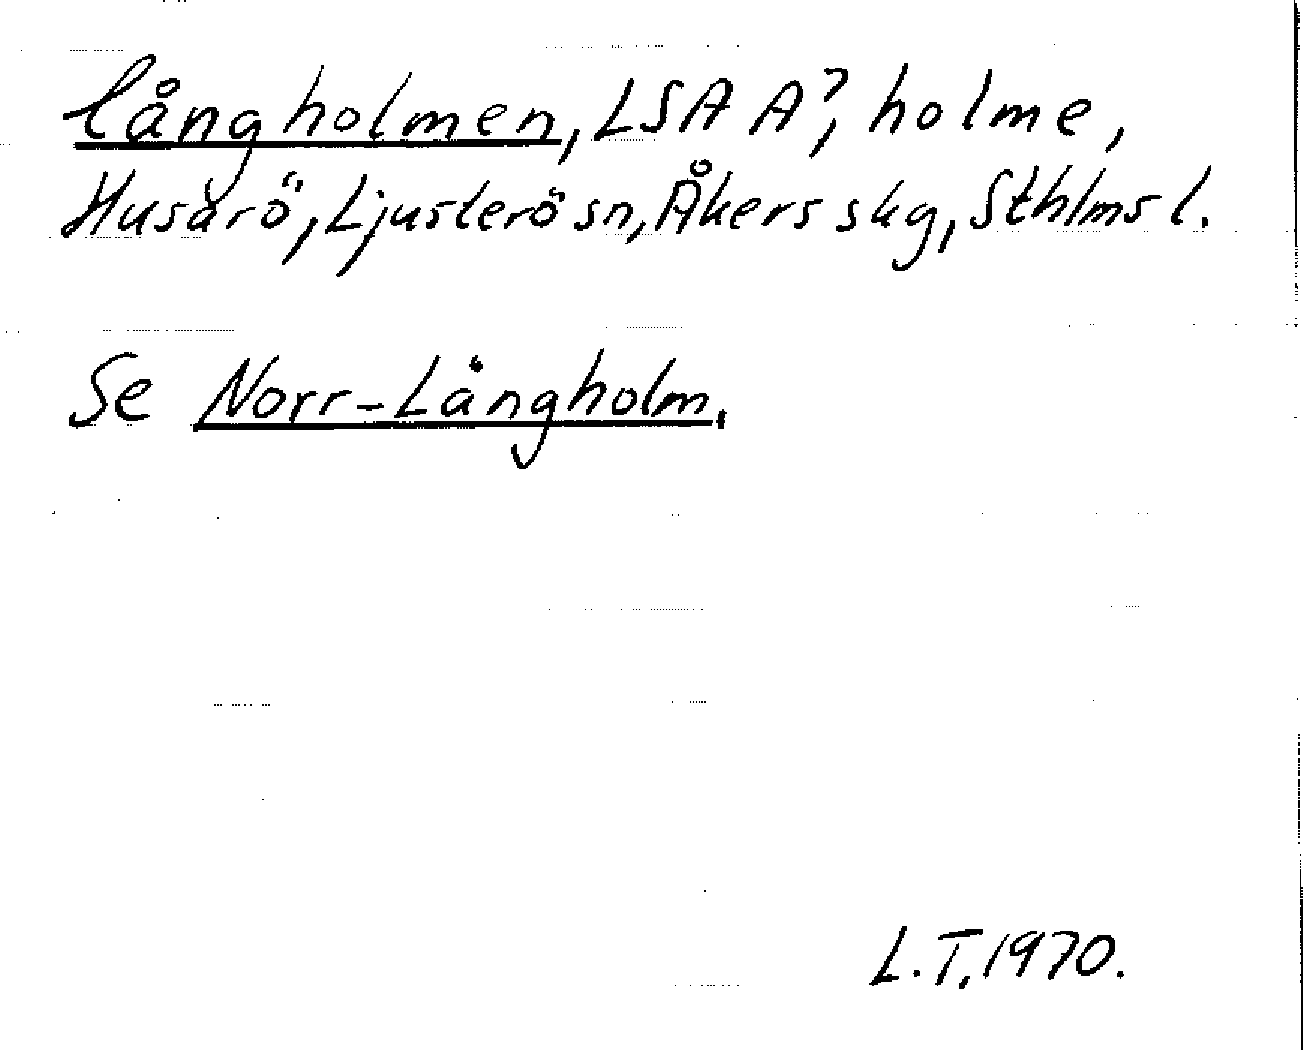 Långholmen, LSA A?, holme,
Husarö, Ljusterö sn, Åkers skg, Sthlms l.
Se Norr-Långholm.
L.T. 1970.